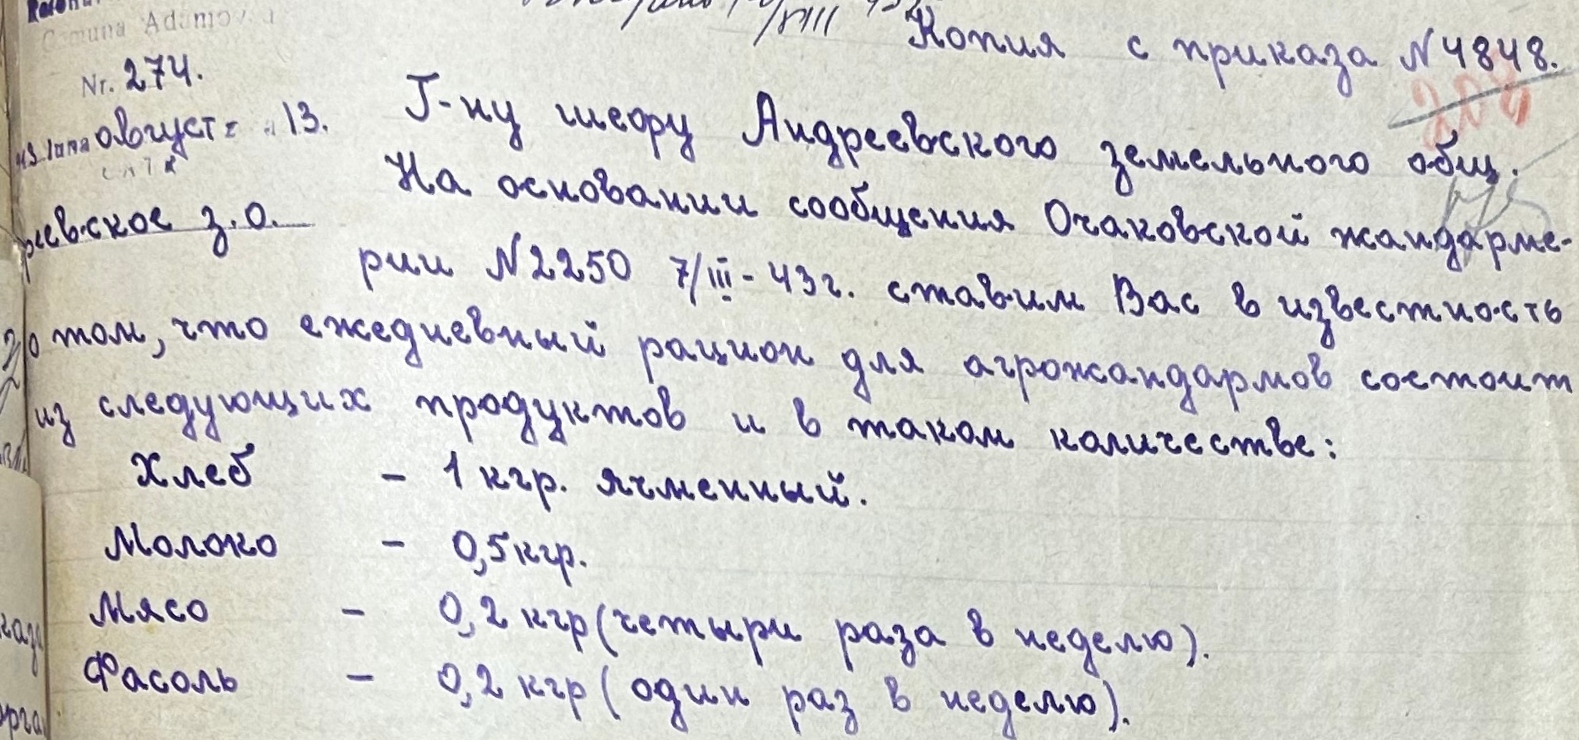 Comuna Adamovca
Копия с приказа N 4848.
Nr. 274.
208
август 13.
Г-ну шефу Андреевского земельного общ.
На основании сообщения Очаковской жандарме-
евское з.о.
рии N2250 7/III-43г. ставим Вас в известность
о том, что ежедневный рацион для агрожандармов состоит
из следующих продуктов и в таком количестве:
Хлеб - 1 кгр. ячменный.
Молоко - 0,5 кгр.
Мясо - 0,2 кгр (четыри раза в неделю).
Фасоль - 0,2 кгр (один раз в неделю).